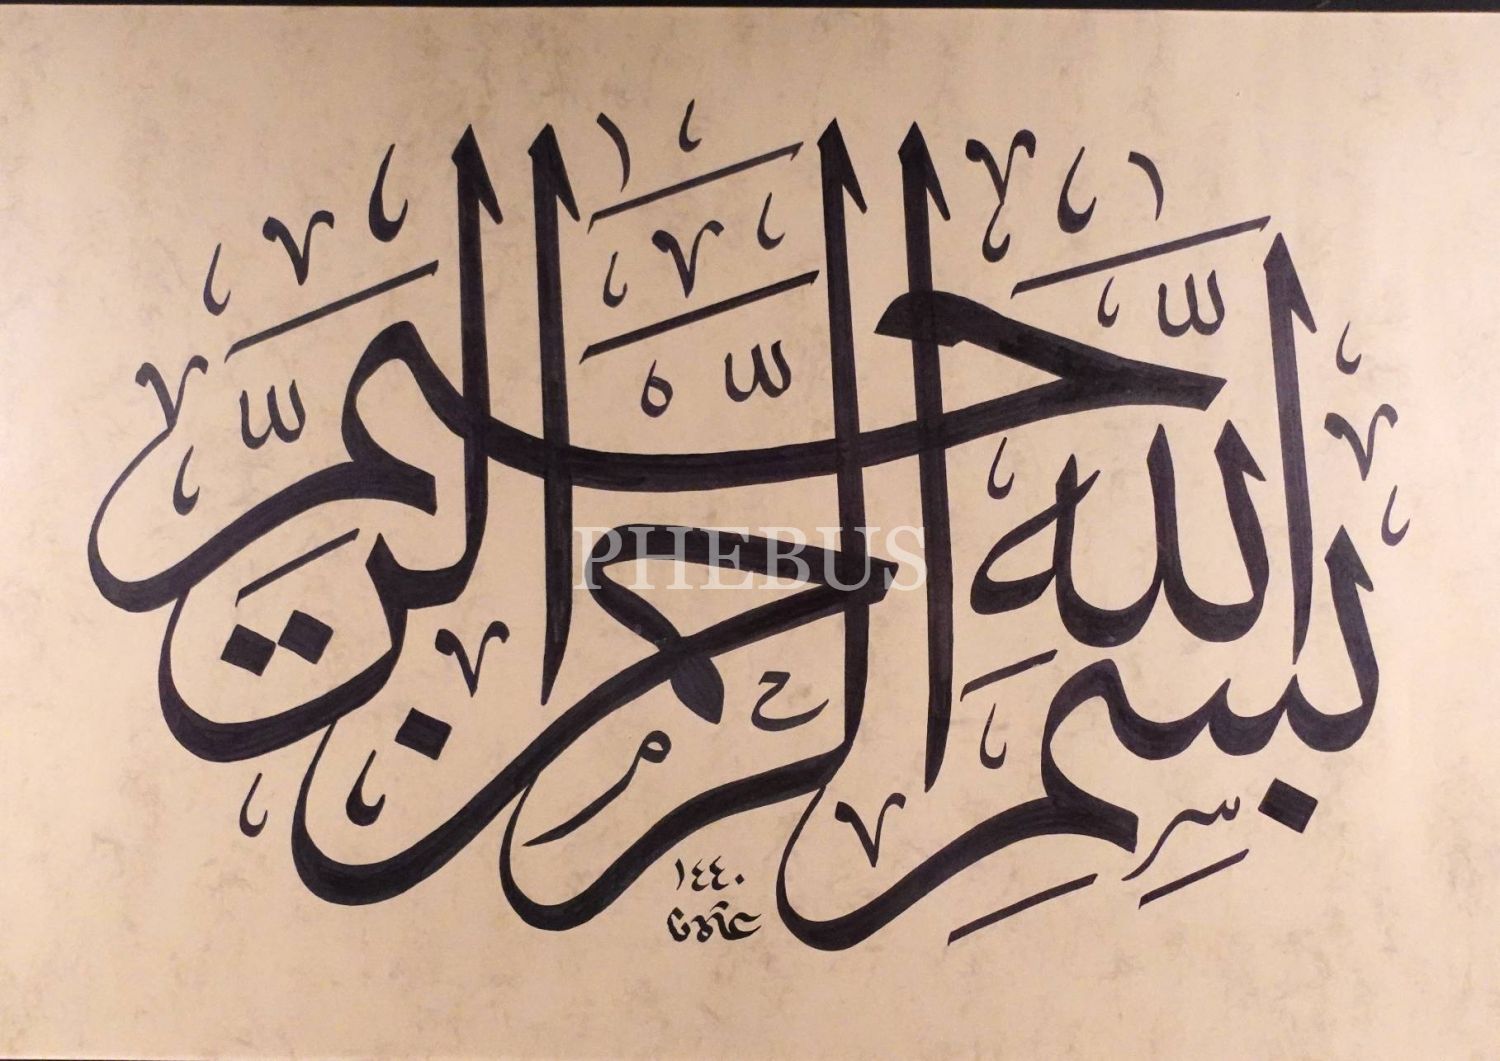 بِسْمِ اللَّهِ الرَّحْمَنِ الرَّحِيمِ
PHEBUS
١٤٤٠